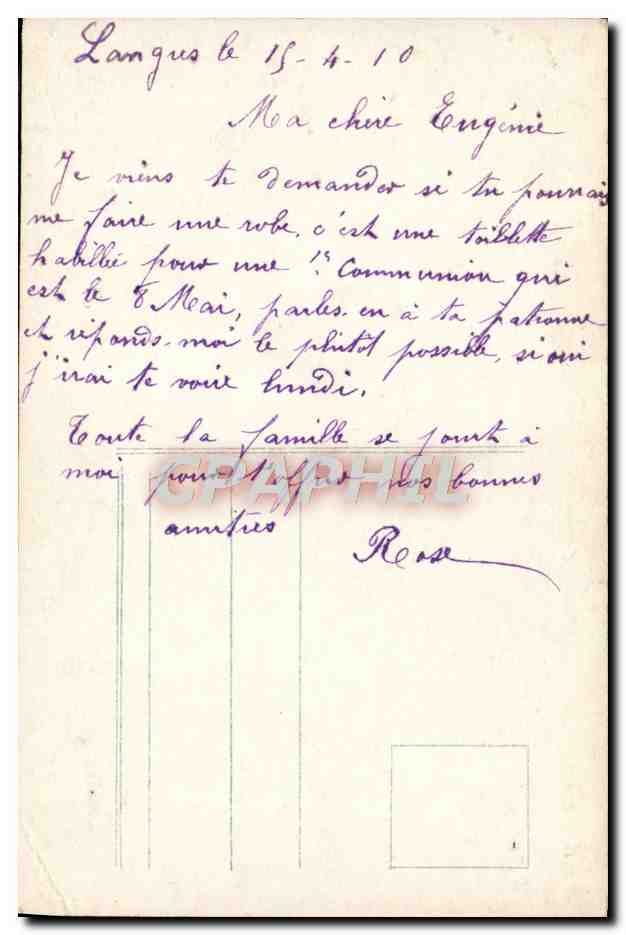 Langres le 15-4-10
Ma chère Eugénie
Je viens te demander si tu pourrais
me faire une robe, c'est une toillette
habillée pour une 1re Communion qui
est le 8 Mai, parles-en à ta patronne
et réponds-moi le plutôt possible, si oui
j'irai te voire lundi.
Toute la famille se joint à
moi pour t'offrir nos bonnes
CPAPHIL
amitiés
Rose